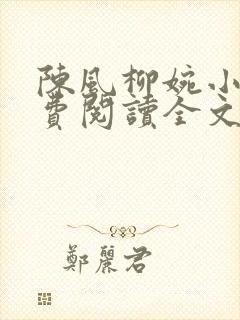 陳風柳婉小
費閱讀全文
鄭麗君